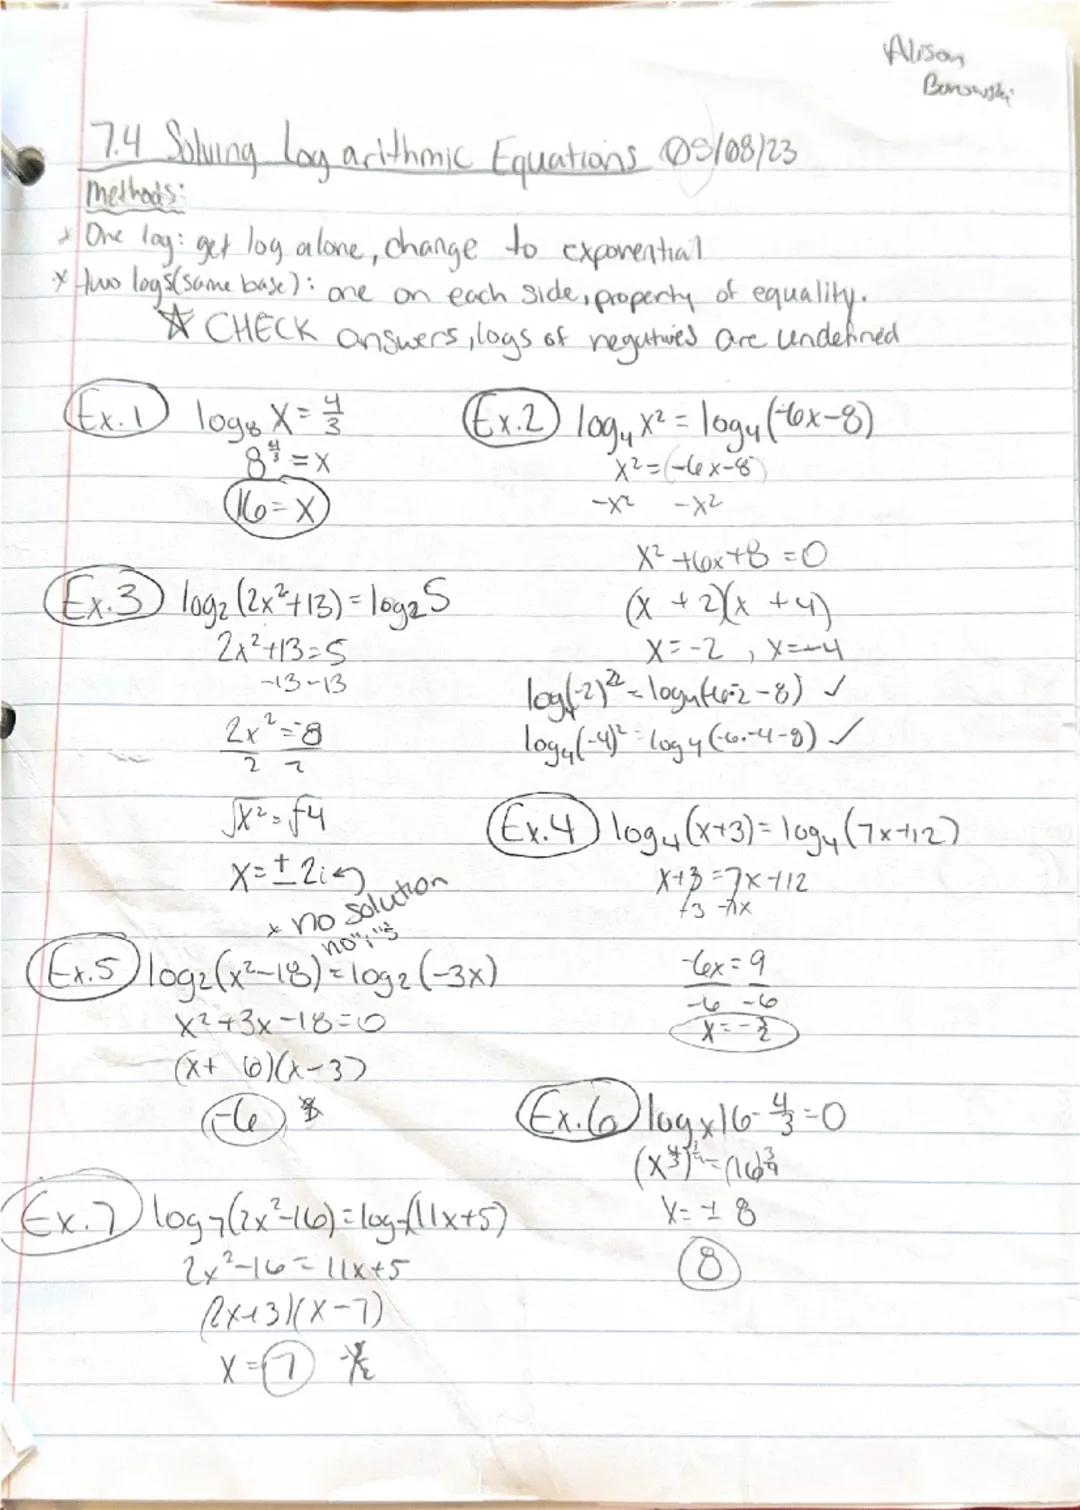 Alison
Borowski
7.4 Solving Logarithmic Equations 05/08/23
Methods:
* One log: get log alone, change to exponential
* two logs (same base): one on each side, property of equality.
☆ CHECK answers, logs of negatives are undefined
Ex.1 log₈ x = 4/3
8^(4/3) = x
16 = x
Ex.2 log₄ x² = log₄(-6x-8)
x² = (-6x-8)
-x² -x²
x² + 6x + 8 = 0
(x + 2)(x + 4)
x = -2, x = -4
log₄(-2)² = log₄(-6·-2 - 8) ✓
log₄(-4)² = log₄(-6·-4-8) ✓
Ex.3 log₂(2x²+13) = log₂5
2x²+13 = 5
-13 -13
2x² = -8
2 2
√x² = √4
x = ± 2i
* no solution
no "i"s
Ex.4 log₄(x+3) = log₄(7x+12)
x+3 = 7x+12
-6x = 9
-6 -6
x = -3/2
Ex.5 log₂(x²-18) = log₂(-3x)
x² + 3x - 18 = 0
(x + 6)(x - 3)
-6
Ex.6 logₓ16 - 4/3 = 0
(x^(4/3))^(3/4) = (16)^(3/4)
x = ± 8
8
Ex.7 log₇(2x²-16) = log₇(11x+5)
2x²-16 = 11x+5
(2x+3)(x-7)
x = 7